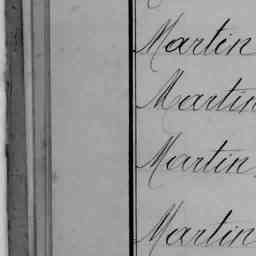 Martin
Martin
Martin
Martin